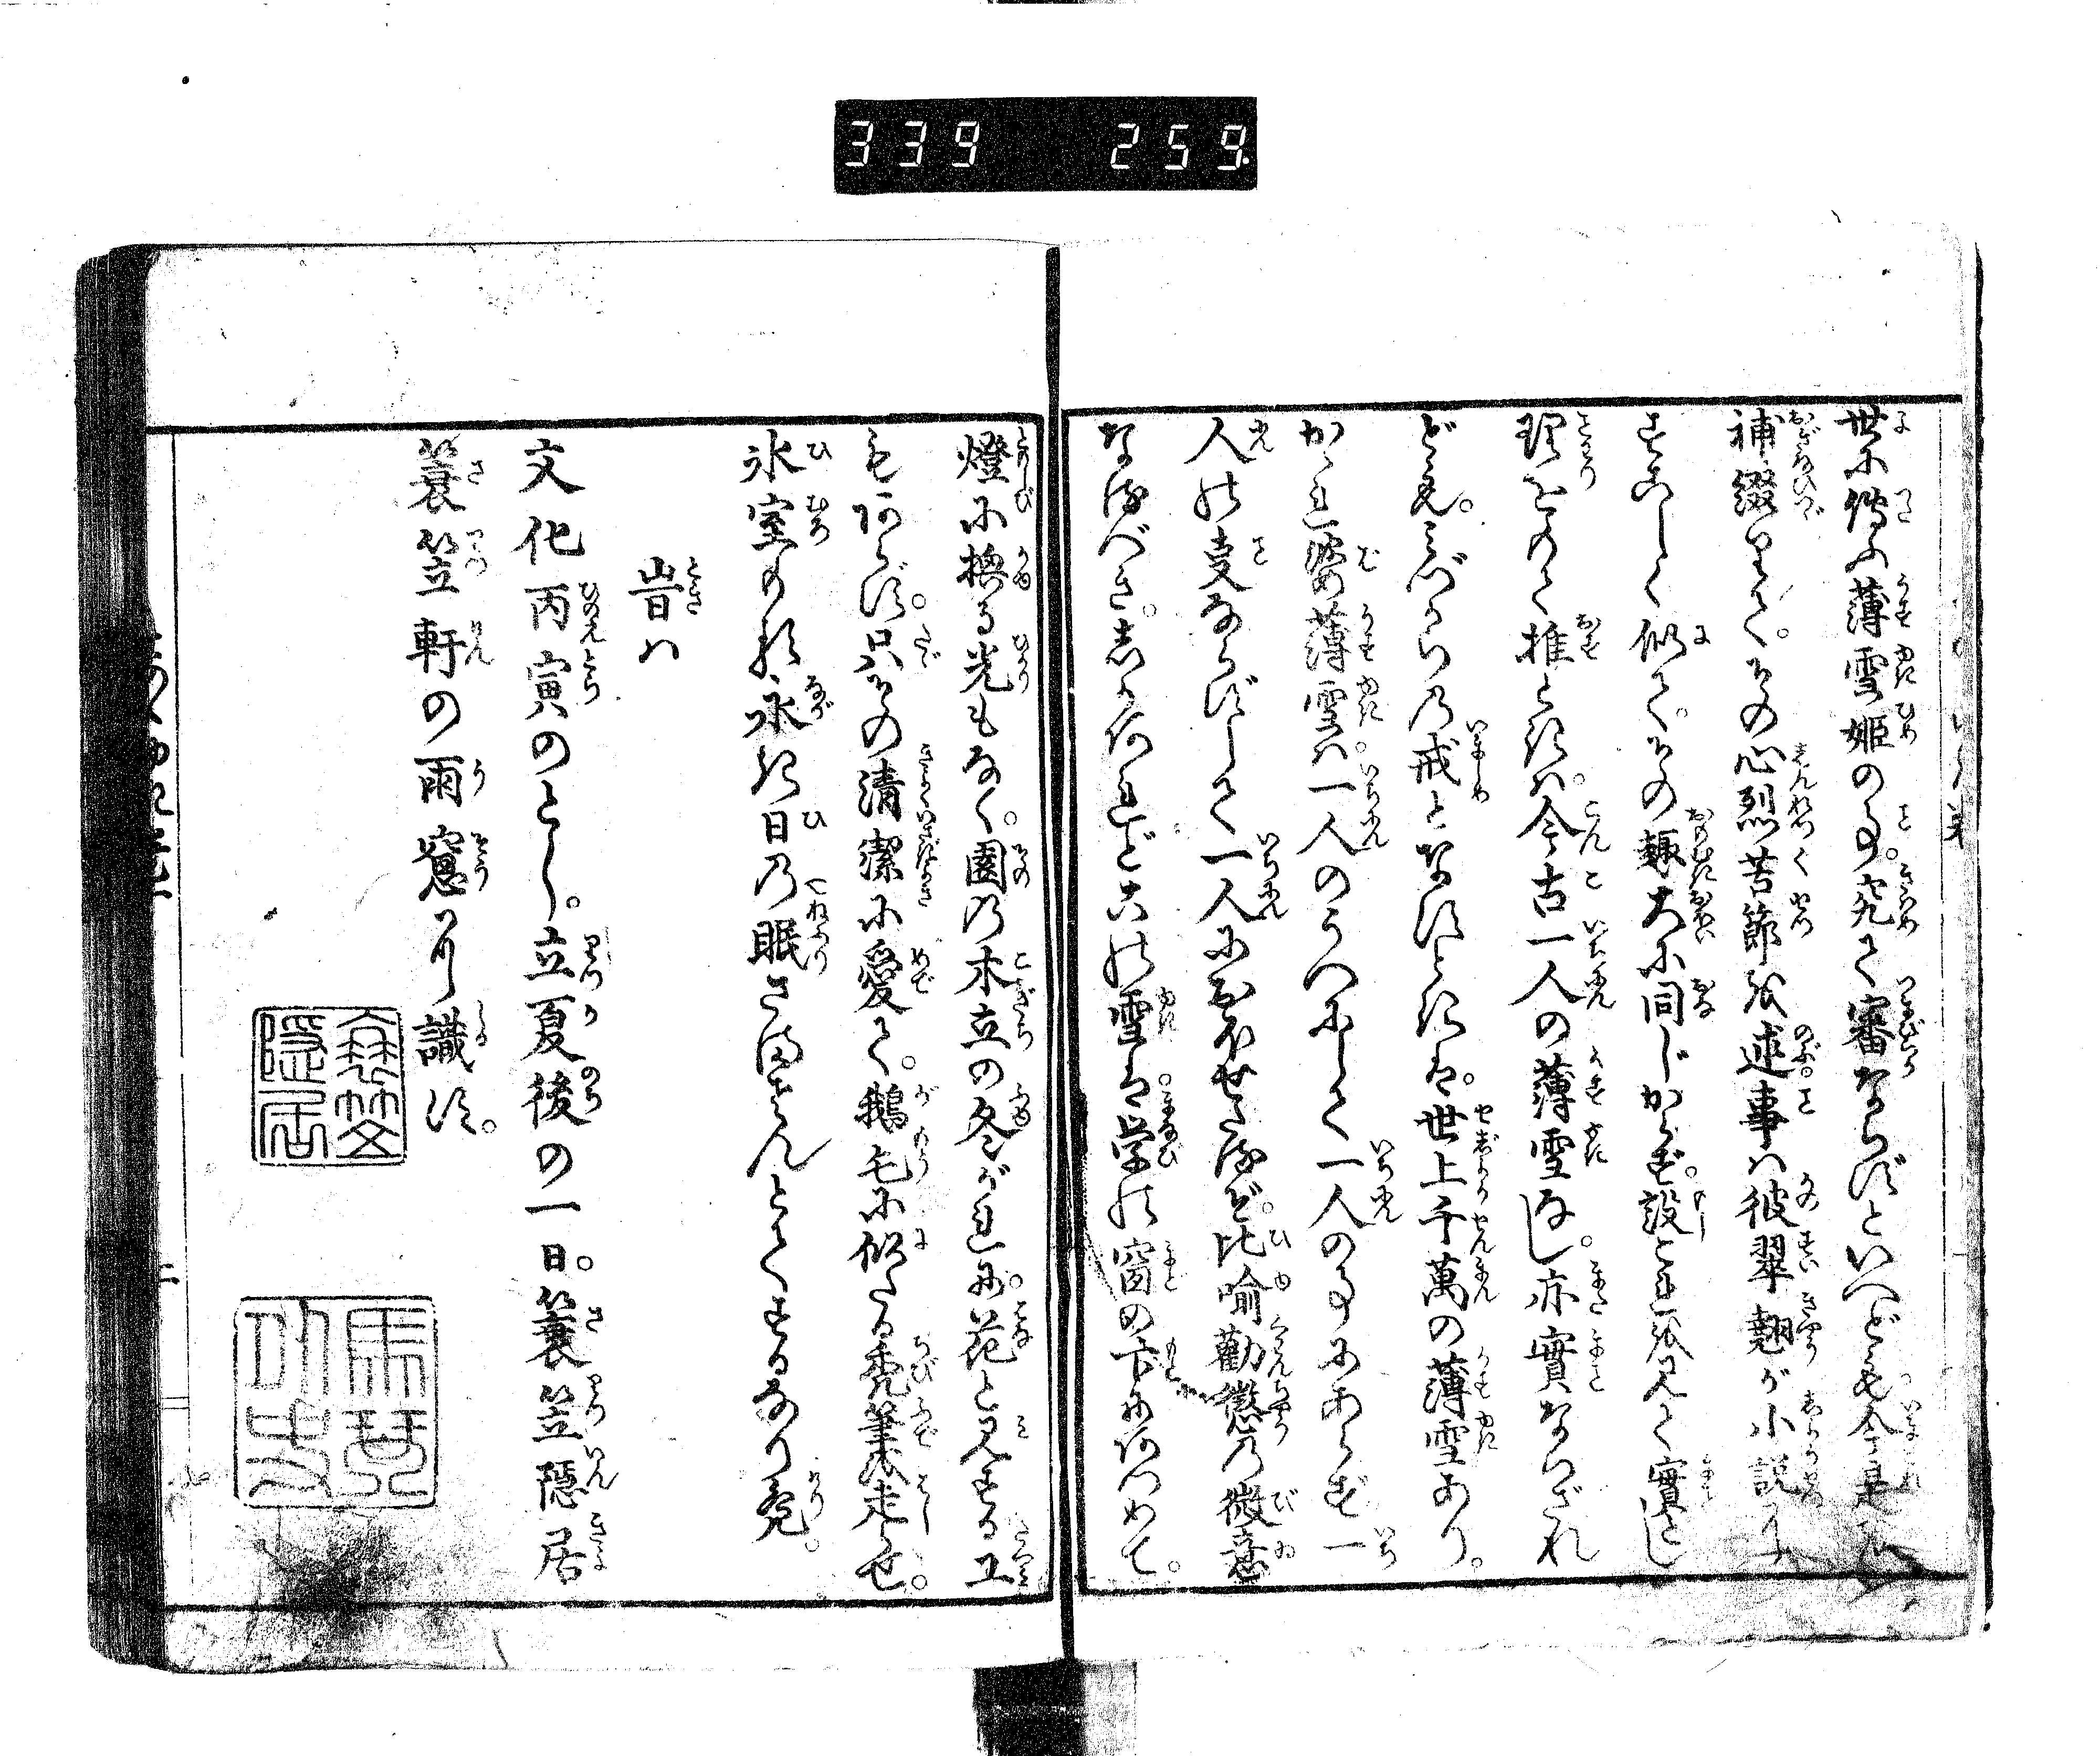 339 259
世に傳ふ薄雪姫の事。究て審ならずといへども。今是を
補綴りて。その心烈苦節を述。事は彼翠翹が小説に
すこしく似て。その趣大に同じからず。設これを見て實とし
理をもて推ときは。今古一人の薄雪なし。亦實ならざれ
ども。みづからの戒となすときは。世上千萬の薄雪あり。
かゝれば薄雪は一人のうへにして一人の事にあらず。一
人の事ならずして一人におほせたるぞ。比喩勸懲の微意
なるべき。しかあれど六の雪は。学の窗の下にあつめて。
燈に換る光もなく。園の木立の冬がれに。花と見する工
もあらず。只その清潔に愛て。鵝毛に似たる禿筆を走らせ。
氷室もる永き日の眠さまさんとてするなり鳧。
旹は
文化丙寅のとし。立夏後の一日。簑笠隱居
簑笠軒の雨窻に識す。
簑笠隱居
馬琴
二